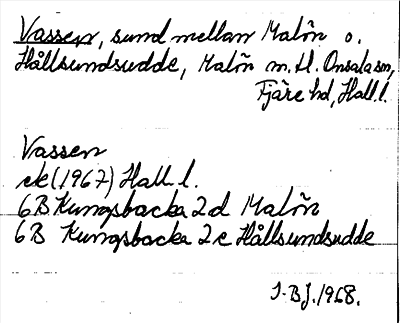 Vassen, sund mellan Malön o.
Hållsundsudde, Malön m.fl. Onsala sn,
Fjäre hd, Hall. l.
Vassen
ek (1967) Hall. l.
6B Kungsbacka 2d Malön
6B Kungsbacka 2c Hållsundsudde
I-BJ. 1968.